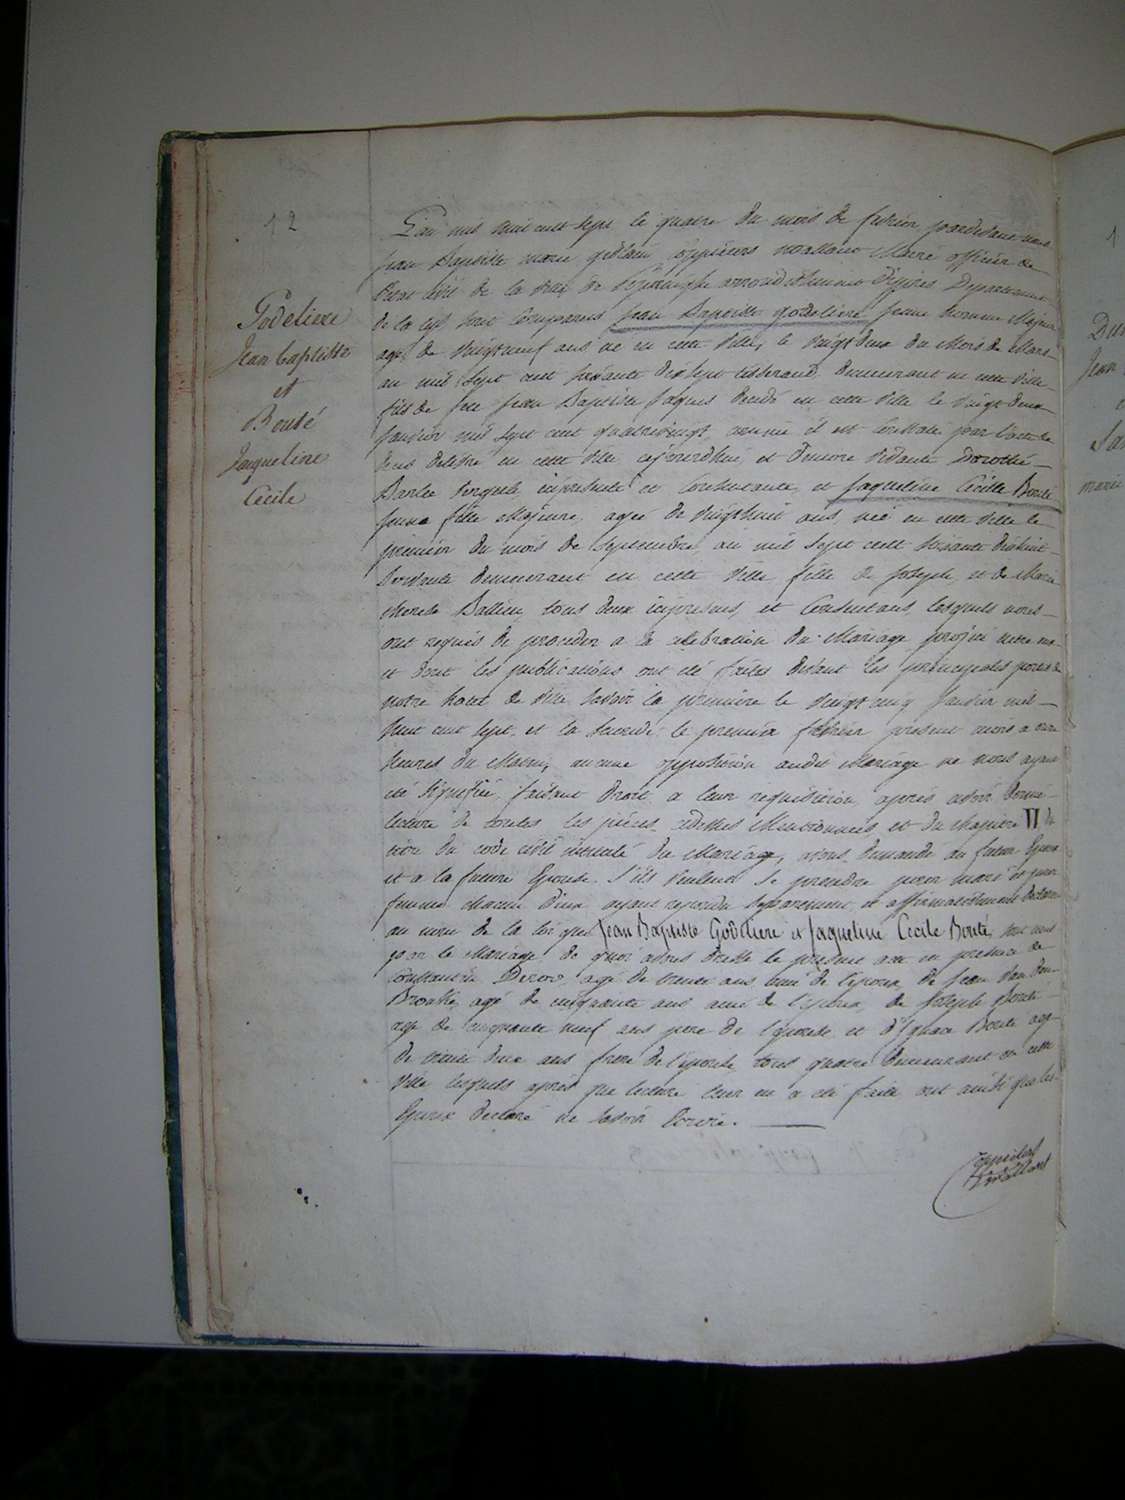 12
Godeliere
Jean baptiste
et
Bouté
Jaqueline
Cecile
L'an mil huit cent sept le quatre du mois de fevrier pardevant nous
Jean Baptiste marie Coppieters Wallant Maire officier de
l'etat civil de la ville de arrondissement D'ypres Departement
de la Lys sont Comparus Jean Baptiste godeliere Jeune homme Majeur
agé de vingt neuf ans né en cette ville, le vingt deux du Mois de Mars
an mil sept cent soixante dix sept tisserand demeurant en cette ville
fils de feu Jean Baptiste Jaques decedé en cette ville le vingt deux
Janvier mil sept cent quatre vingt comme il est constaté par l'acte de
deces delivré en cette ville cejourd'hui et d'encore vivante Dorothé
ici presente et Consentante, et Jaqueline Cecille Bouté
Jeune fille Majeure, agée de vingt huit ans, née en cette ville le
premier du mois de septembre an mil sept cent soixante dix huit
demeurant en cette ville fille de Joseph, et de Marie
therese tous deux ici presens, et Consentans, lesquels nous
ont requis de proceder a la celebration du Mariage projeté entre eux
et dont les publications ont été faites devant les principales portes de
notre hotel de ville savoir la premiere le vingt cinq Janvier mil
huit cent sept et la seconde le premier fevrier present mois a onze
heures du Matin, aucune opposition audit Mariage ne nous ayant
été signifiée, faisant droit a leur requisition, après avoir donné
lecture de toutes les pièces cidessus Mentionnées et du chapitre VI du
titre du code civil intitulé du Mariage, avons demandé au futur Epoux
et a la future Epouse s'ils veulent se prendre pour mari et pour
femme chacun d'eux ayant repondu separement et affirmativement declarons
au nom de la loi que Jean Baptiste Godeliere et Jaqueline Cecile Bouté, sont unis
par le Mariage de quoi avons dressé le present acte en presence de
Constantin agé de trente ans ami de l'epoux, de Jean Van den
Brouke, agé de cinquante ans ami de l'epoux, de Joseph Bouté
agé de cinquante neuf ans pere de l'epouse et d'Ignace Bouté agé
de trente deux ans frere de l'epouse tous quatre demeurant en cette
ville lesquels après que lecture leur en a été faite ont ainsi que les
Epoux declaré ne savoir Ecrire.
Coppieters
Wallant